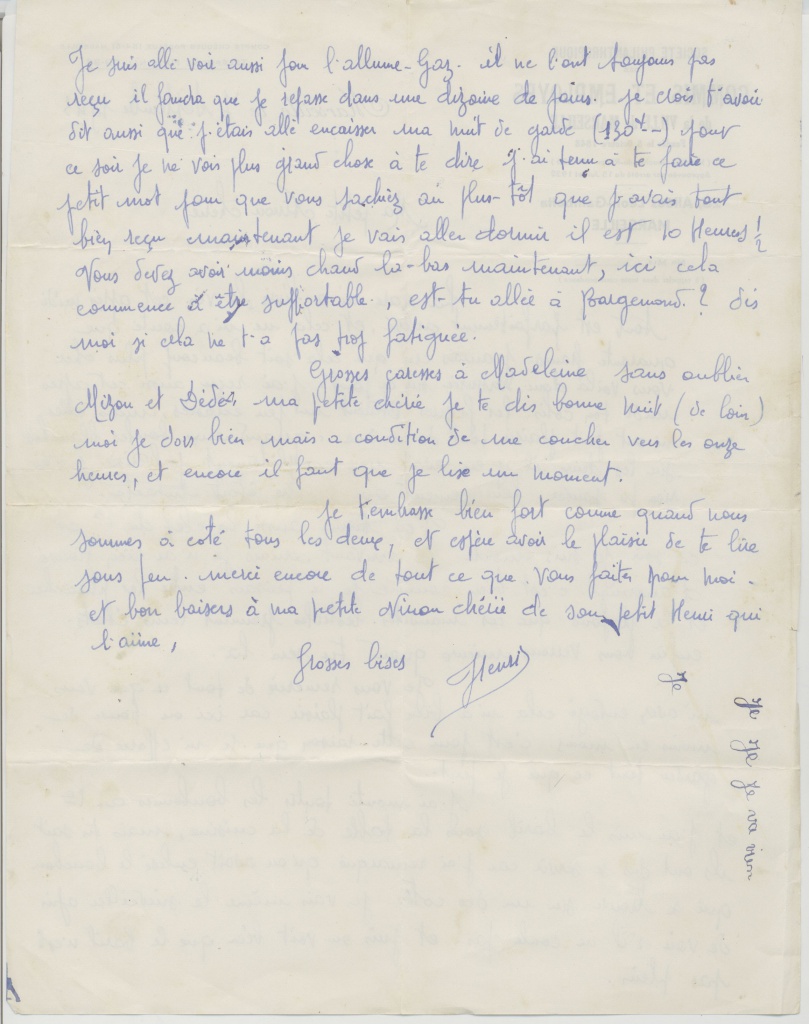 Je suis allé voir aussi pour l'allume-Gaz. il ne l'ont toujours pas
reçu il faudra que je repasse dans une dizaine de jours. je crois t'avoir
dit aussi que j'étais allé encaisser ma nuit de garde (130 -) pour
ce soir je ne vois plus grand chose à te dire j'ai tenu à te faire ce
petit mot pour que vous sachiez au plus-tôt que j'avais tout
bien reçu maintenant je vais aller dormir il est 10 Heures 1/2
Vous devez avoir moins chaud la-bas maintenant, ici cela
commence à être supportable., est-tu allée à Bargemond? dis
moi si cela ne t'a pas trop fatiguée.
Grosses caresses à Madeleine sans oublier
Mizou et Dédé, ma petite chérie je te dis bonne nuit (de loin)
moi je dors bien mais a condition de me coucher vers les onze
heures, et encore il faut que je lise un moment.
Je t'embrasse bien fort comme quand nous
sommes à coté tous les deux, et espère avoir le plaisir de te lire
sous peu. merci encore de tout ce que vous faites pour moi.
et bon baisers à ma petite Ninou chérie de son petit Henri qui
l'aime,
Grosses bises
Henri
Je
Je Je Je va